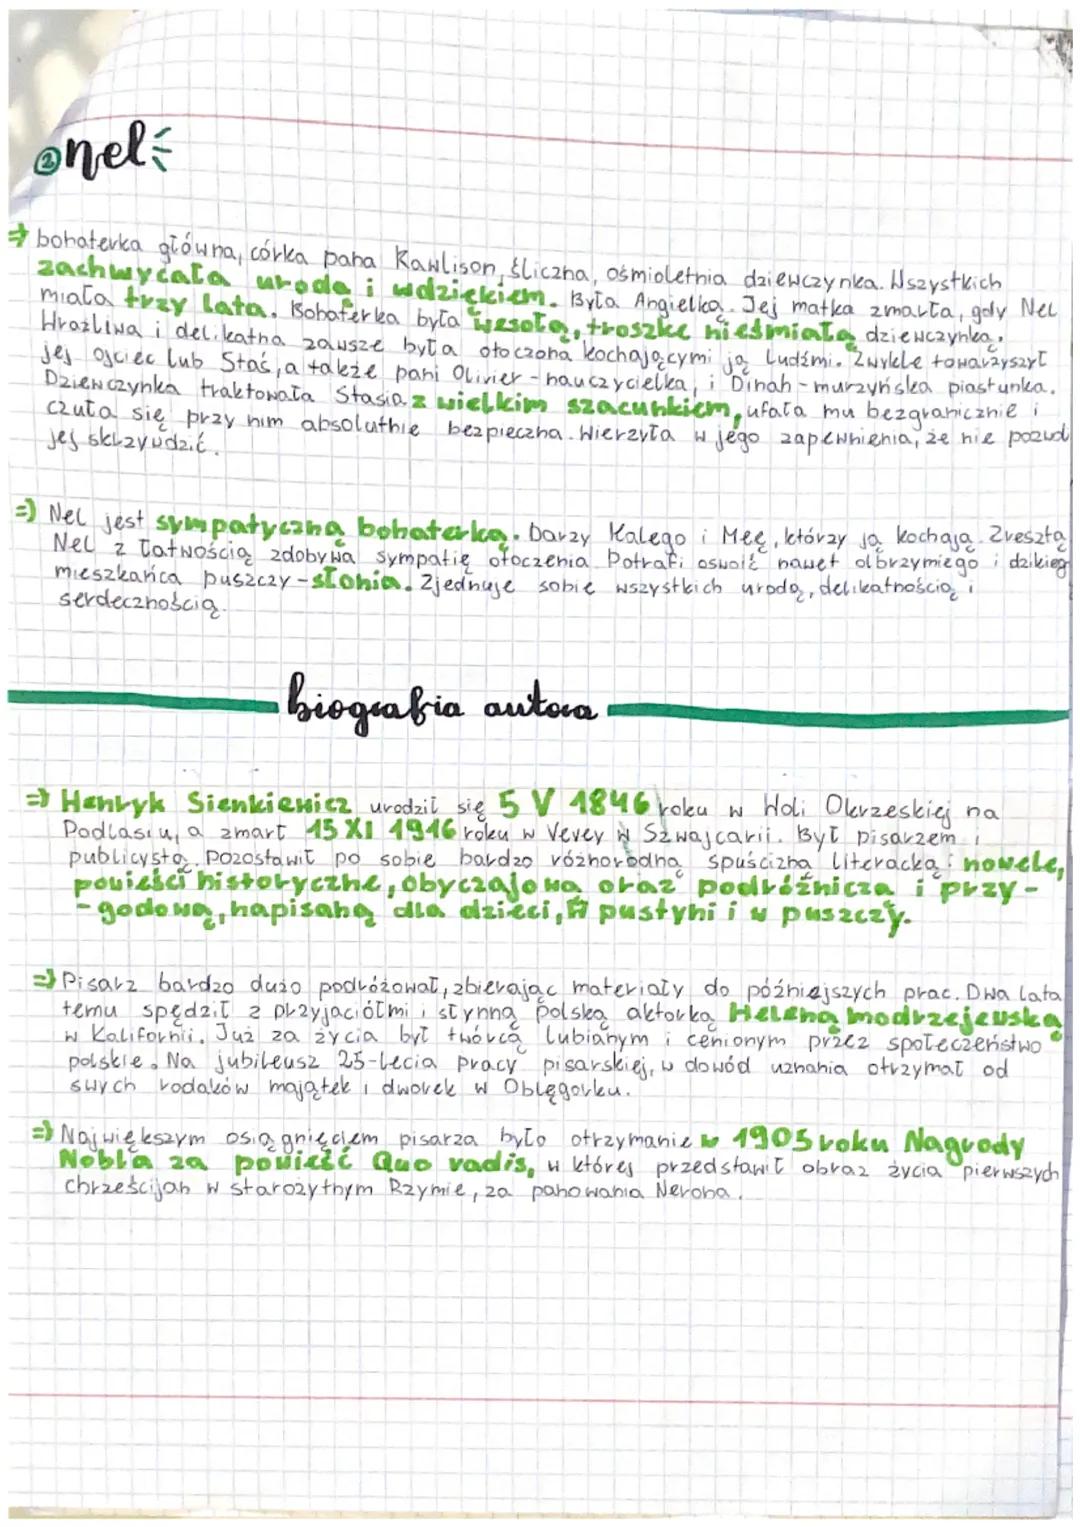 ② nel
⇒ bohaterka główna, córka pana Rawlison, śliczna, ośmioletnia dziewczynka. Wszystkich
zachwycała urodą i wdziękiem. Była Angielką. Jej matka zmarła, gdy Nel
miała trzy lata. Bohaterka była wesołą, troszkę nieśmiałą dziewczynką.
Wrażliwa i delikatna zawsze była otoczona kochającymi ją ludźmi. Zwykle towarzyszył
jej ojciec lub Staś, a także pani Olivier - nauczycielka, i Dinah - murzyńska piastunka.
Dziewczynka traktowała Stasia z wielkim szacunkiem, ufała mu bezgranicznie i
czuła się przy nim absolutnie bezpieczna. Wierzyła w jego zapewnienia, że nie pozwol
jej skrzywdzić.
⇒ Nel jest sympatyczną bohaterką. Darzy Kalego i Meę, którzy ją kochają. Zresztą
Nel z łatwością zdobywa sympatię otoczenia. Potrafi oswoić nawet olbrzymiego i dzikieg
mieszkańca puszczy - słonia. Zjednuje sobie wszystkich urodą, delikatnością i
serdecznością.
biografia autora
⇒ Henryk Sienkiewicz urodził się 5 V 1846 roku w Woli Okrzeskiej na
Podlasiu, a zmarł 15 XI 1916 roku w Vevey w Szwajcarii. Był pisarzem i
publicystą. Pozostawił po sobie bardzo różnorodną spuściznę literacką: nowele,
powieści historyczne, obyczajową oraz podróżniczą i przy-
-godową, napisaną dla dzieci, W pustyni i w puszczy.
⇒ Pisarz bardzo dużo podróżował, zbierając materiały do późniejszych prac. Dwa lata
temu spędził z przyjaciółmi i słynną polską aktorką Heleną modrzejewską
w Kalifornii. Już za życia był twórcą lubianym i cenionym przez społeczeństwo
polskie. Na jubileusz 25-lecia pracy pisarskiej, w dowód uznania otrzymał od
swych rodaków majątek i dworek w Oblęgorku.
⇒ Największym osiągnięciem pisarza było otrzymanie w 1905 roku Nagrody
Nobla za powieść Quo vadis, w której przedstawił obraz życia pierwszych
chrześcijan w starożytnym Rzymie, za panowania Nerona.